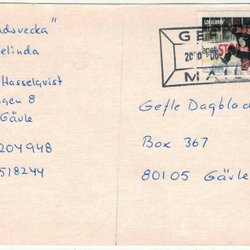 ndsvecka"
elinda
Hasselqvist
gen 8
Gävle
204948
518244
GEFLE
MAIL
Gefle Dagblad
Box 367
80105 Gävle